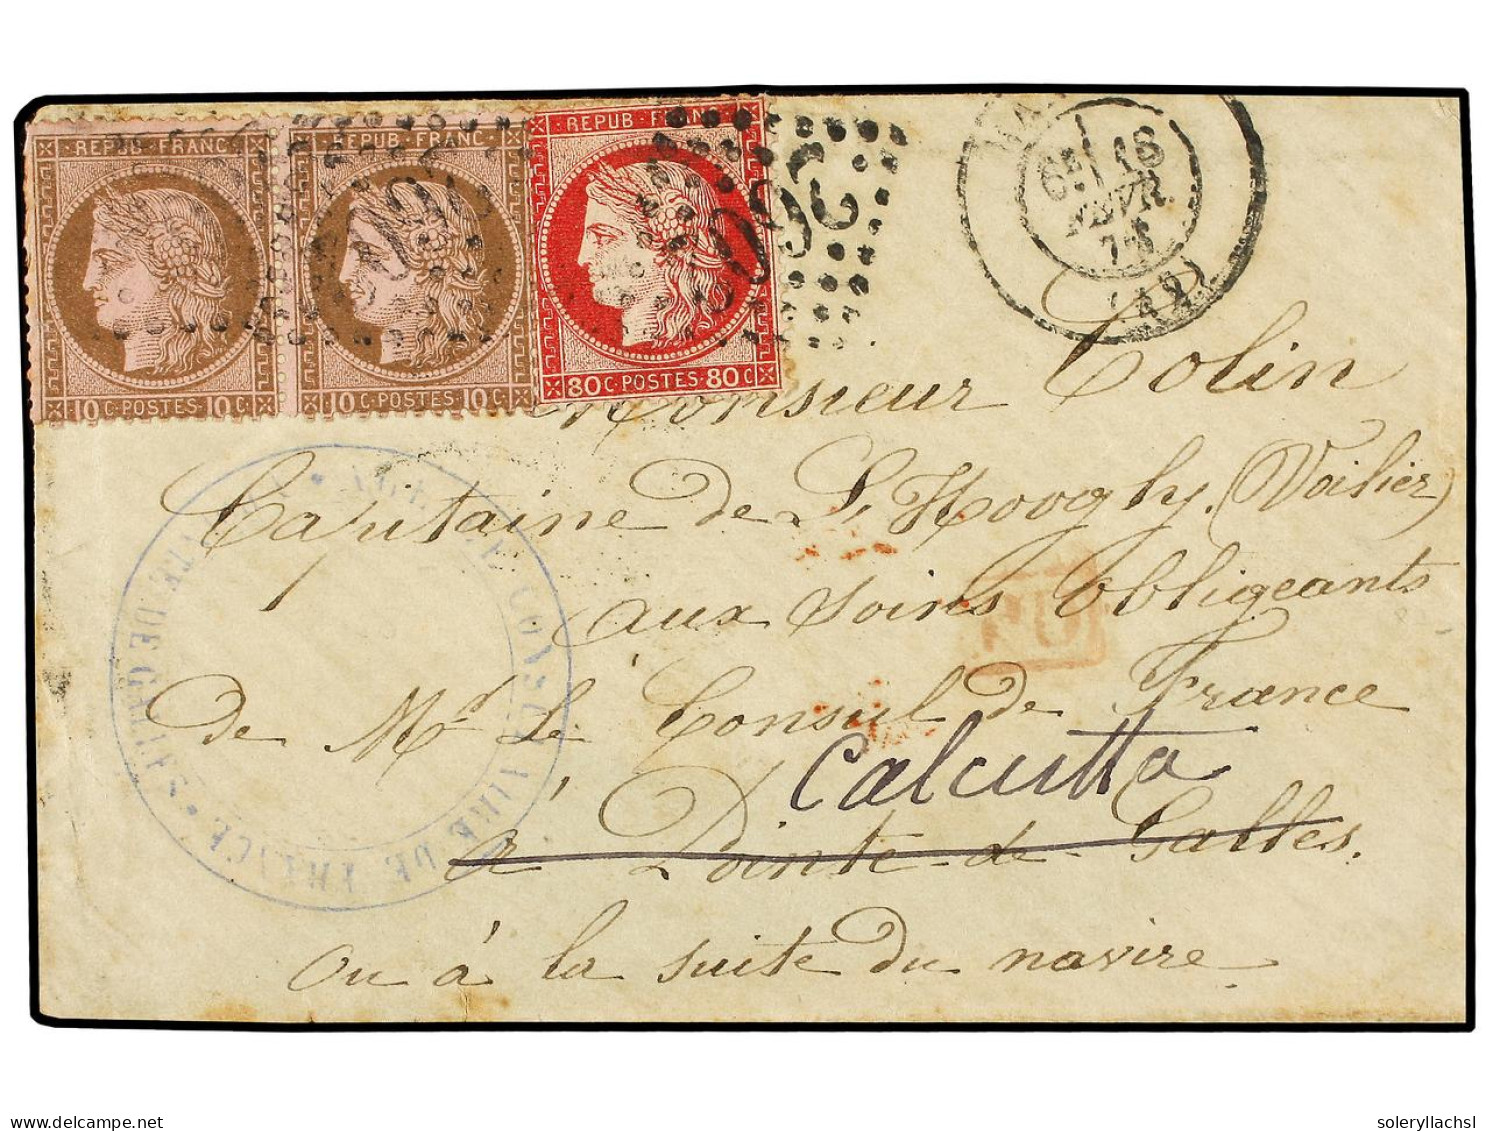 REPUB·FRANC
REPUB·FRANC
REPUB·FRANC
10 C·POSTES·10 C
10 C·POSTES·10 C
80 C·POSTES·80 C
18
FEVR
Monsieur Colin
Capitaine de L'Hoogly (Voilier)
aux soins obligeants
de Mr. le Consul de France
Calcutta
à Pointe-de-Galles.
ou à la suite du navire
CONSULAIRE DE FRANCE
PD
soleryllachsl